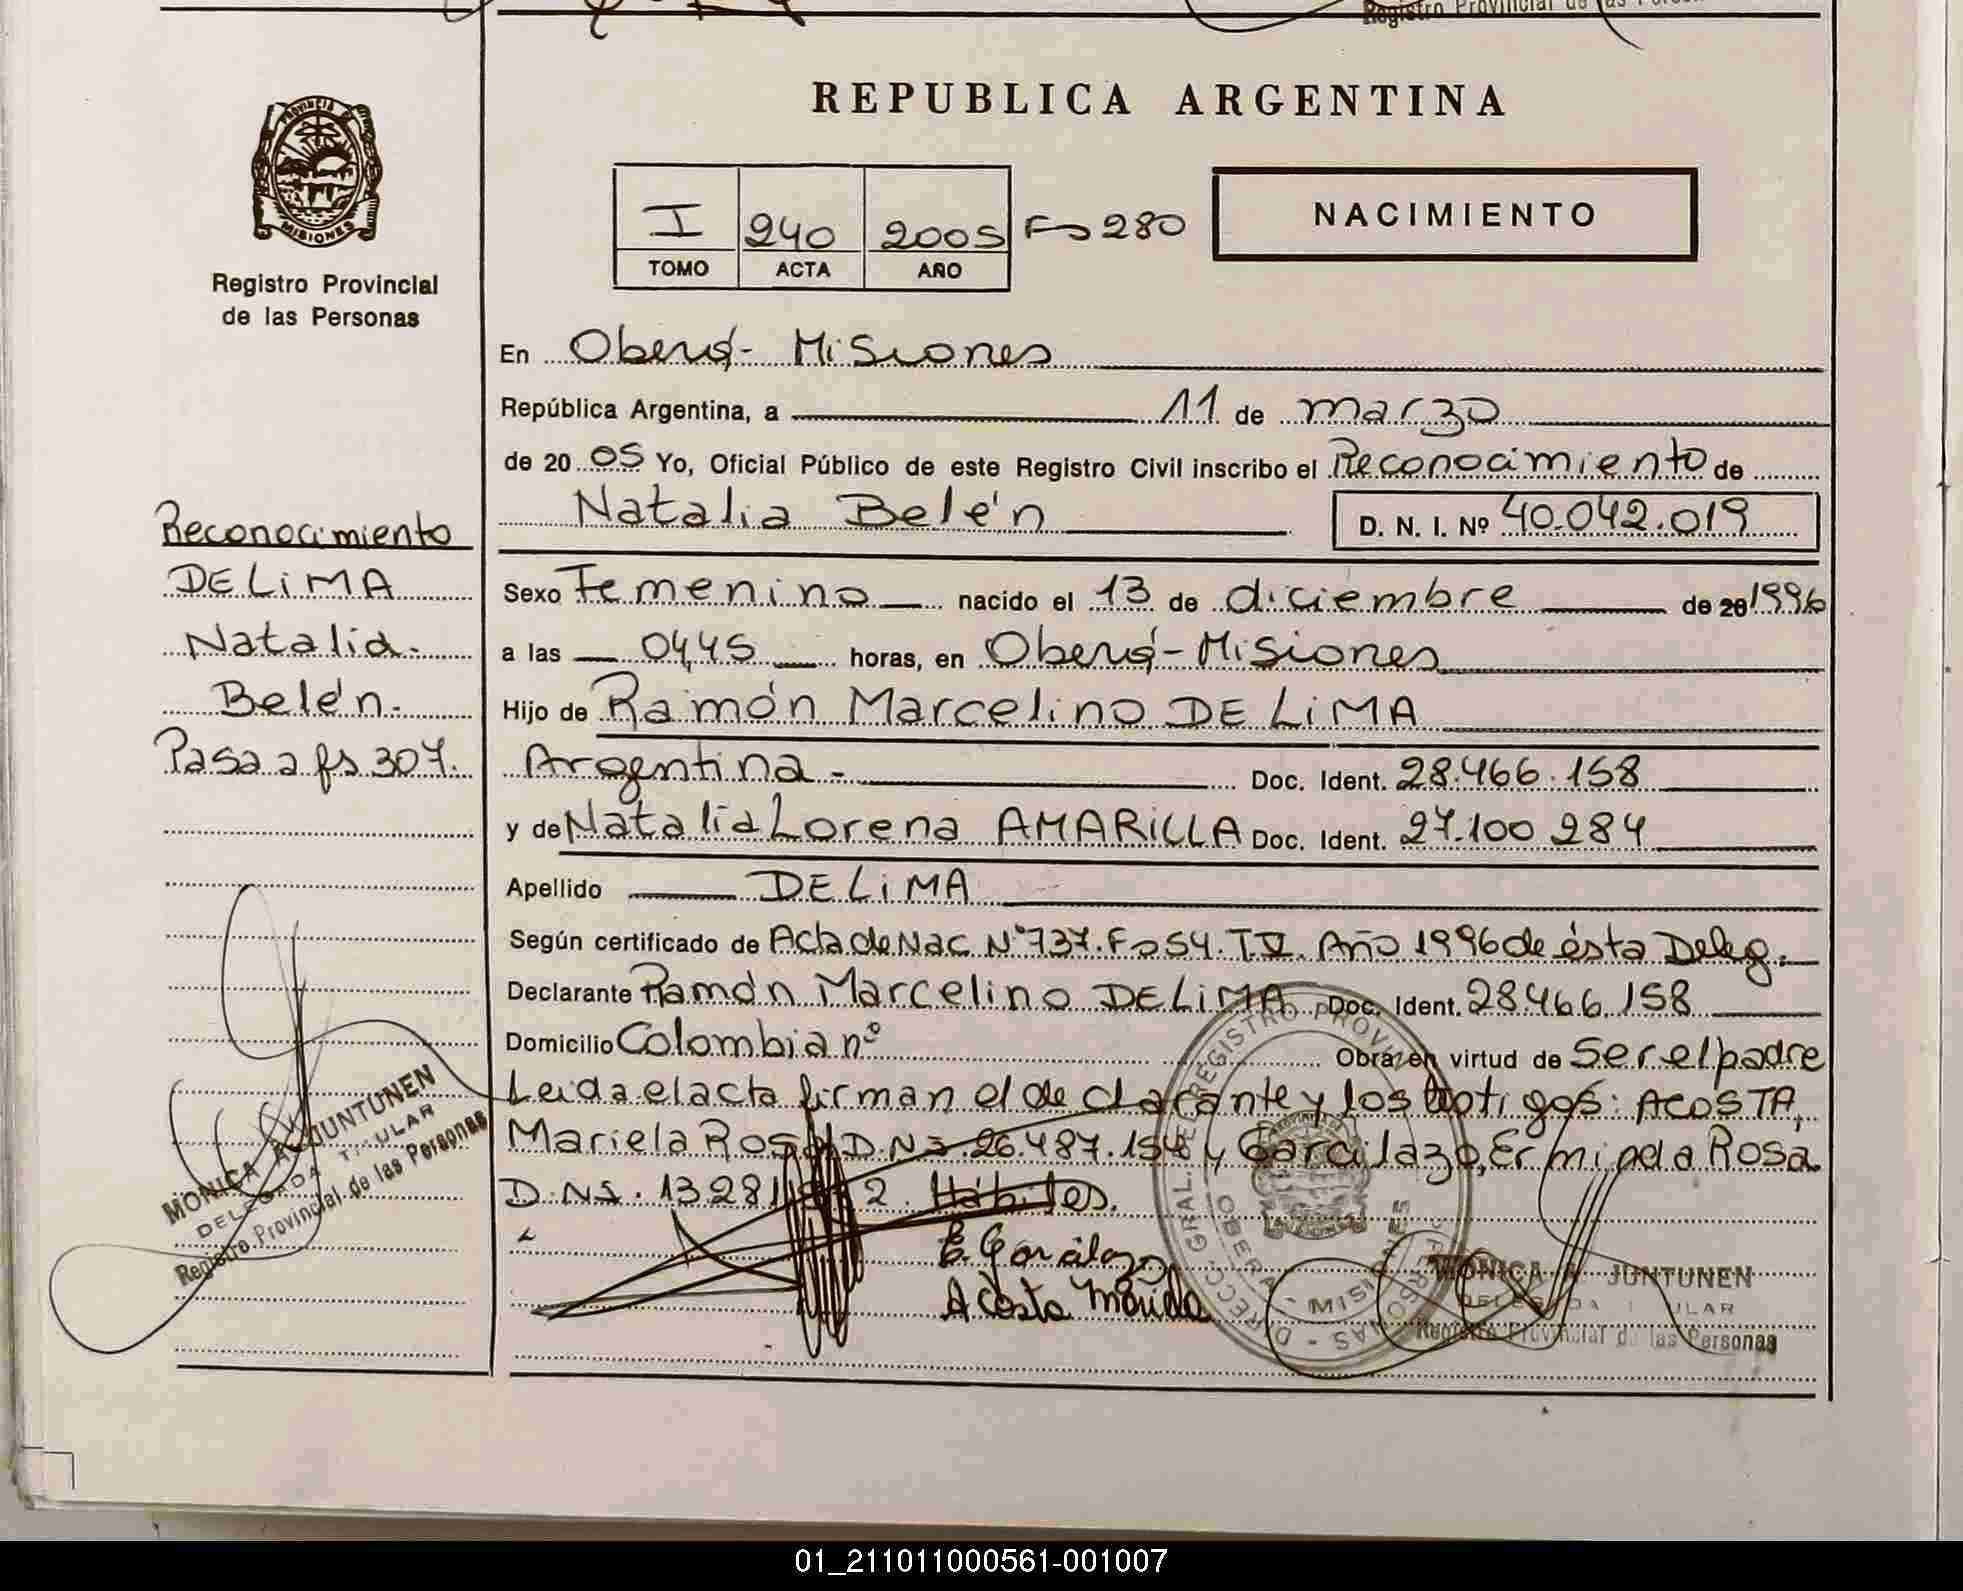 Registro Provincial de las Personas
PROVINCIA DE
MISIONES
Registro Provincial
de las Personas
REPUBLICA ARGENTINA
I 240 2005 Fs 280
TOMO ACTA AÑO
NACIMIENTO
En Oberá- Misiones
República Argentina, a 11 de marzo
de 2005 Yo, Oficial Público de este Registro Civil inscribo el Reconocimiento de
Natalia Belén D. N. I. Nº 40.042.019
Sexo Femenino nacido el 13 de diciembre de 20 1996
a las 04,45 horas, en Oberá-Misiones
Hijo de Ramón Marcelino DE LiMA
Argentina - Doc. Ident. 28.466.158
y de Natalia Lorena AMARiLLA Doc. Ident. 27.100 284
Apellido DE LiMA
Según certificado de Acta de Nac. Nº 737. Fº 54. T.V. Año 1996 de ésta Deleg.
Declarante Ramón Marcelino DE LiMA Doc. Ident. 28.466.158
Domicilio Colombia nº Obra en virtud de Ser el padre
Leida el acta firman el declarante y los testigos: ACOSTA,
Mariela Rosa D.N.I. 26.487.154 y Garcilazo, Erminda Rosa
D.N.I. 13281 2. Hábiles.
Acosta
Reconocimiento
DE LiMA
Natalia-
Belén.-
Pasa a fs 307.
MONICA A. JUNTUNEN
DELEGADA TITULAR
Registro Provincial de las Personas
DIRECC. GRAL. DEL REGISTRO PROVINCIAL DE LAS PERSONAS -
OBERA - MISIONES
MONICA A. JUNTUNEN
DELEGADA TITULAR
Registro Provincial de las Personas
01_211011000561-001007